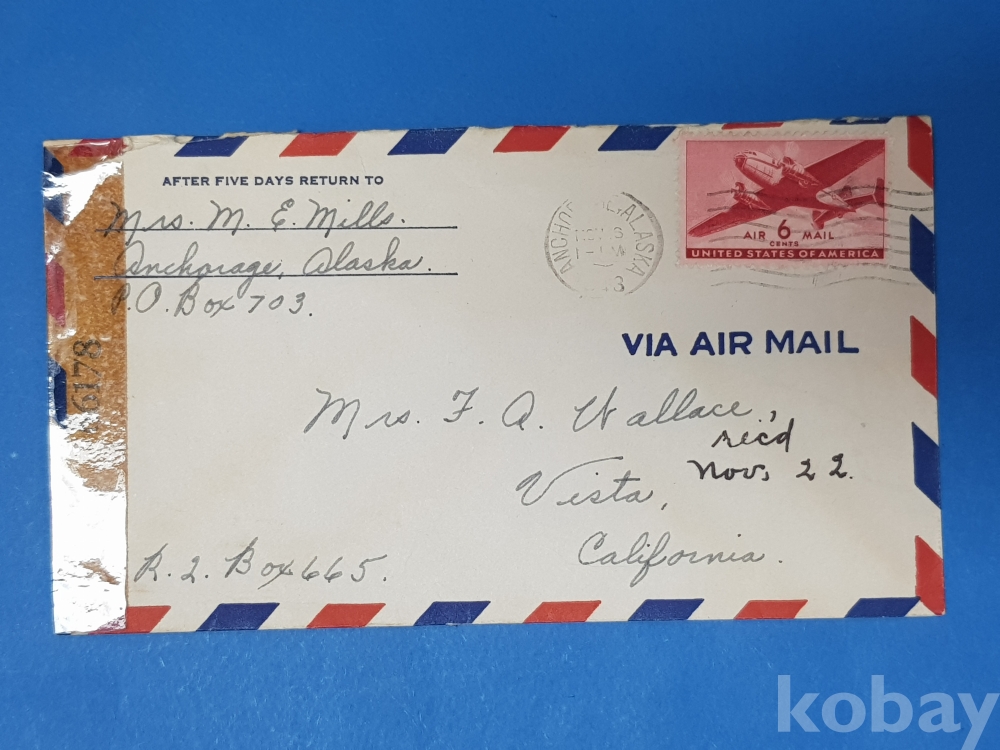 AFTER FIVE DAYS RETURN TO
Mrs. M. E. Mills.
Anchorage, Alaska.
P.O. Box 703.
ALASKA
AIR 6 MAIL
CENTS
UNITED STATES OF AMERICA
VIA AIR MAIL
6178
Mrs. F. A. Wallace,
recd
Nov, 22.
Vista,
California.
R. 2. Box 665.
kobay